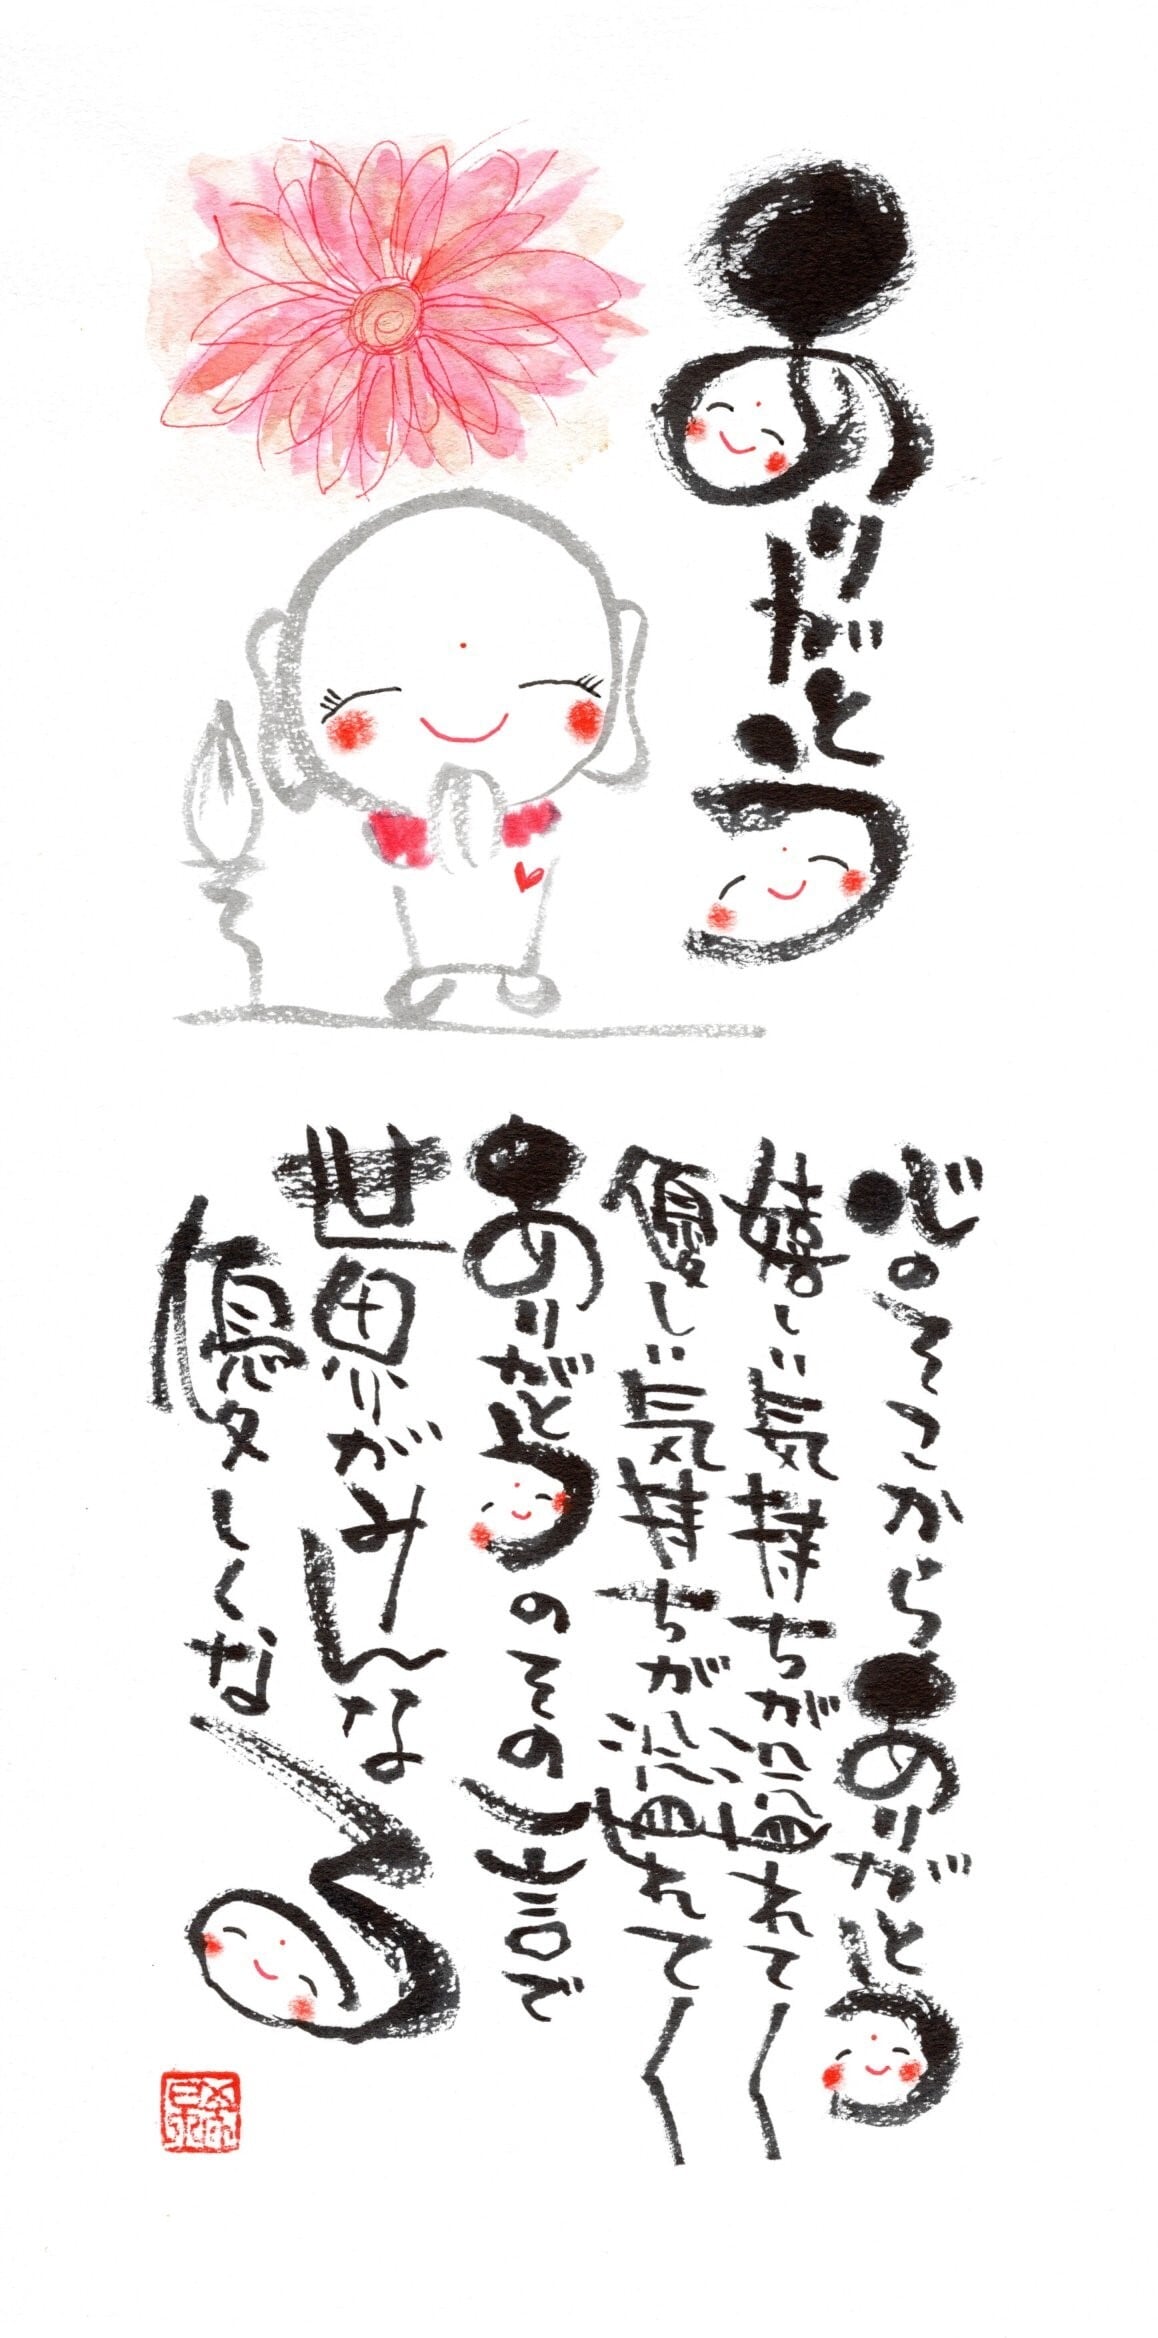 ありがとう
心のそこからありがとう
嬉しい気持ちが溢れて〱
優しい気持ちが溢れて〱
ありがとうのその一言で
世界がみんな
優しくなる